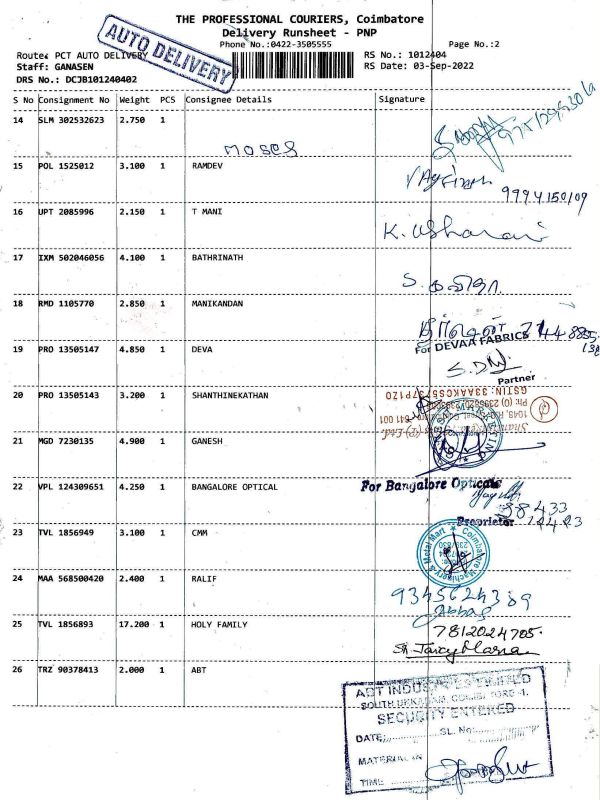 THE PROFESSIONAL COURIERS, Coimbatore
Delivery Runsheet - PNP
Phone No.:0422-3505555 Page No.:2
AUTO DELIVERY
Route: PCT AUTO DELIVERY RS No.: 1012404
Staff: GANASEN RS Date: 03-Sep-2022
DRS No.: DCJB101240402
S No Consignment No Weight PCS Consignee Details Signature
14 SLM 302532623 2.750 1
moses
15 POL 1525012 3.100 1 RAMDEV
9994150109
16 UPT 2085996 2.150 1 T MANI K. Usharani
17 IXM 502046056 4.100 1 BATHRINATH
18 RMD 1105770 2.850 1 MANIKANDAN
For DEVAA FABRICS
19 PRO 13505147 4.850 1 DEVA
Partner
20 PRO 13505143 3.200 1 SHANTHINEKATHAN
21 MGD 7230135 4.900 1 GANESH
22 VPL 124309651 4.250 1 BANGALORE OPTICAL For Bangalore Opticals
Proprietor
23 TVL 1856949 3.100 1 CMM
Coimbatore Machinery & Metal Mart
24 MAA 568500420 2.400 1 RALIF
9345624389
Abbas
25 TVL 1856893 17.200 1 HOLY FAMILY 7812024705
26 TRZ 90378413 2.000 1 ABT
ABT INDUSTRIES LIMITED
SECURITY ENTERED
DATE: SL. No:
MATERIAL IN
TIME